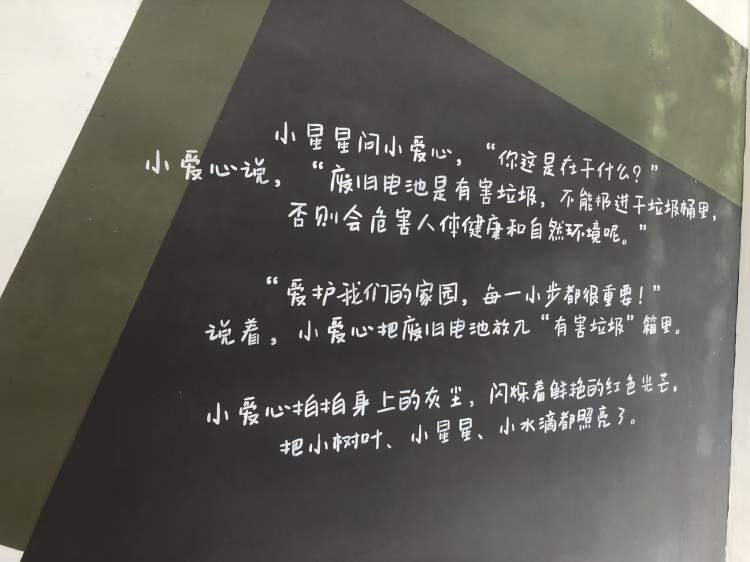 小星星问小爱心，“你这是在干什么？”
小爱心说，“废旧电池是有害垃圾，不能扔进干垃圾桶里，
否则会危害人体健康和自然环境呢。”
“爱护我们的家园，每一小步都很重要！”
说着，小爱心把废旧电池放入“有害垃圾”箱里。
小爱心拍拍身上的灰尘，闪烁着鲜艳的红色光芒，
把小树叶、小星星、小水滴都照亮了。